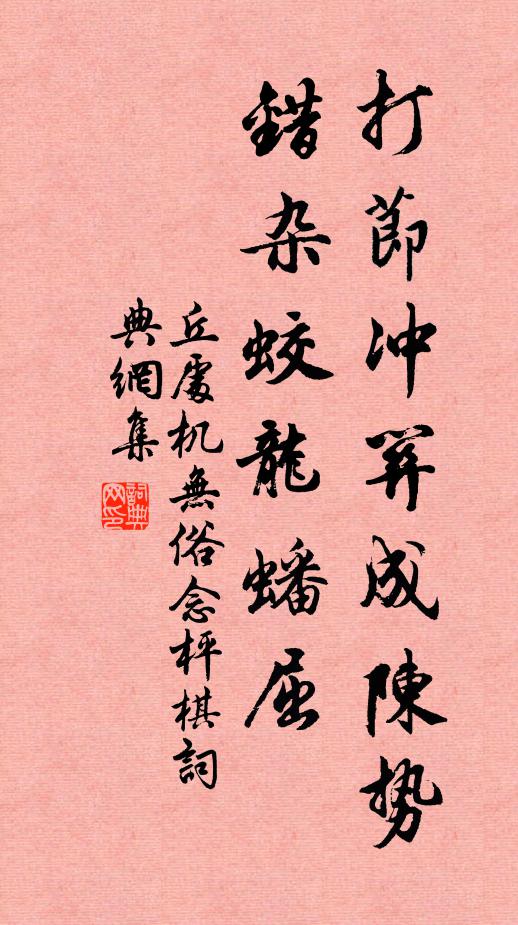 打節冲關成陳勢
錯杂蛟龍蟠屈
丘處机無俗念枰棋詞
典網集
詞典网印